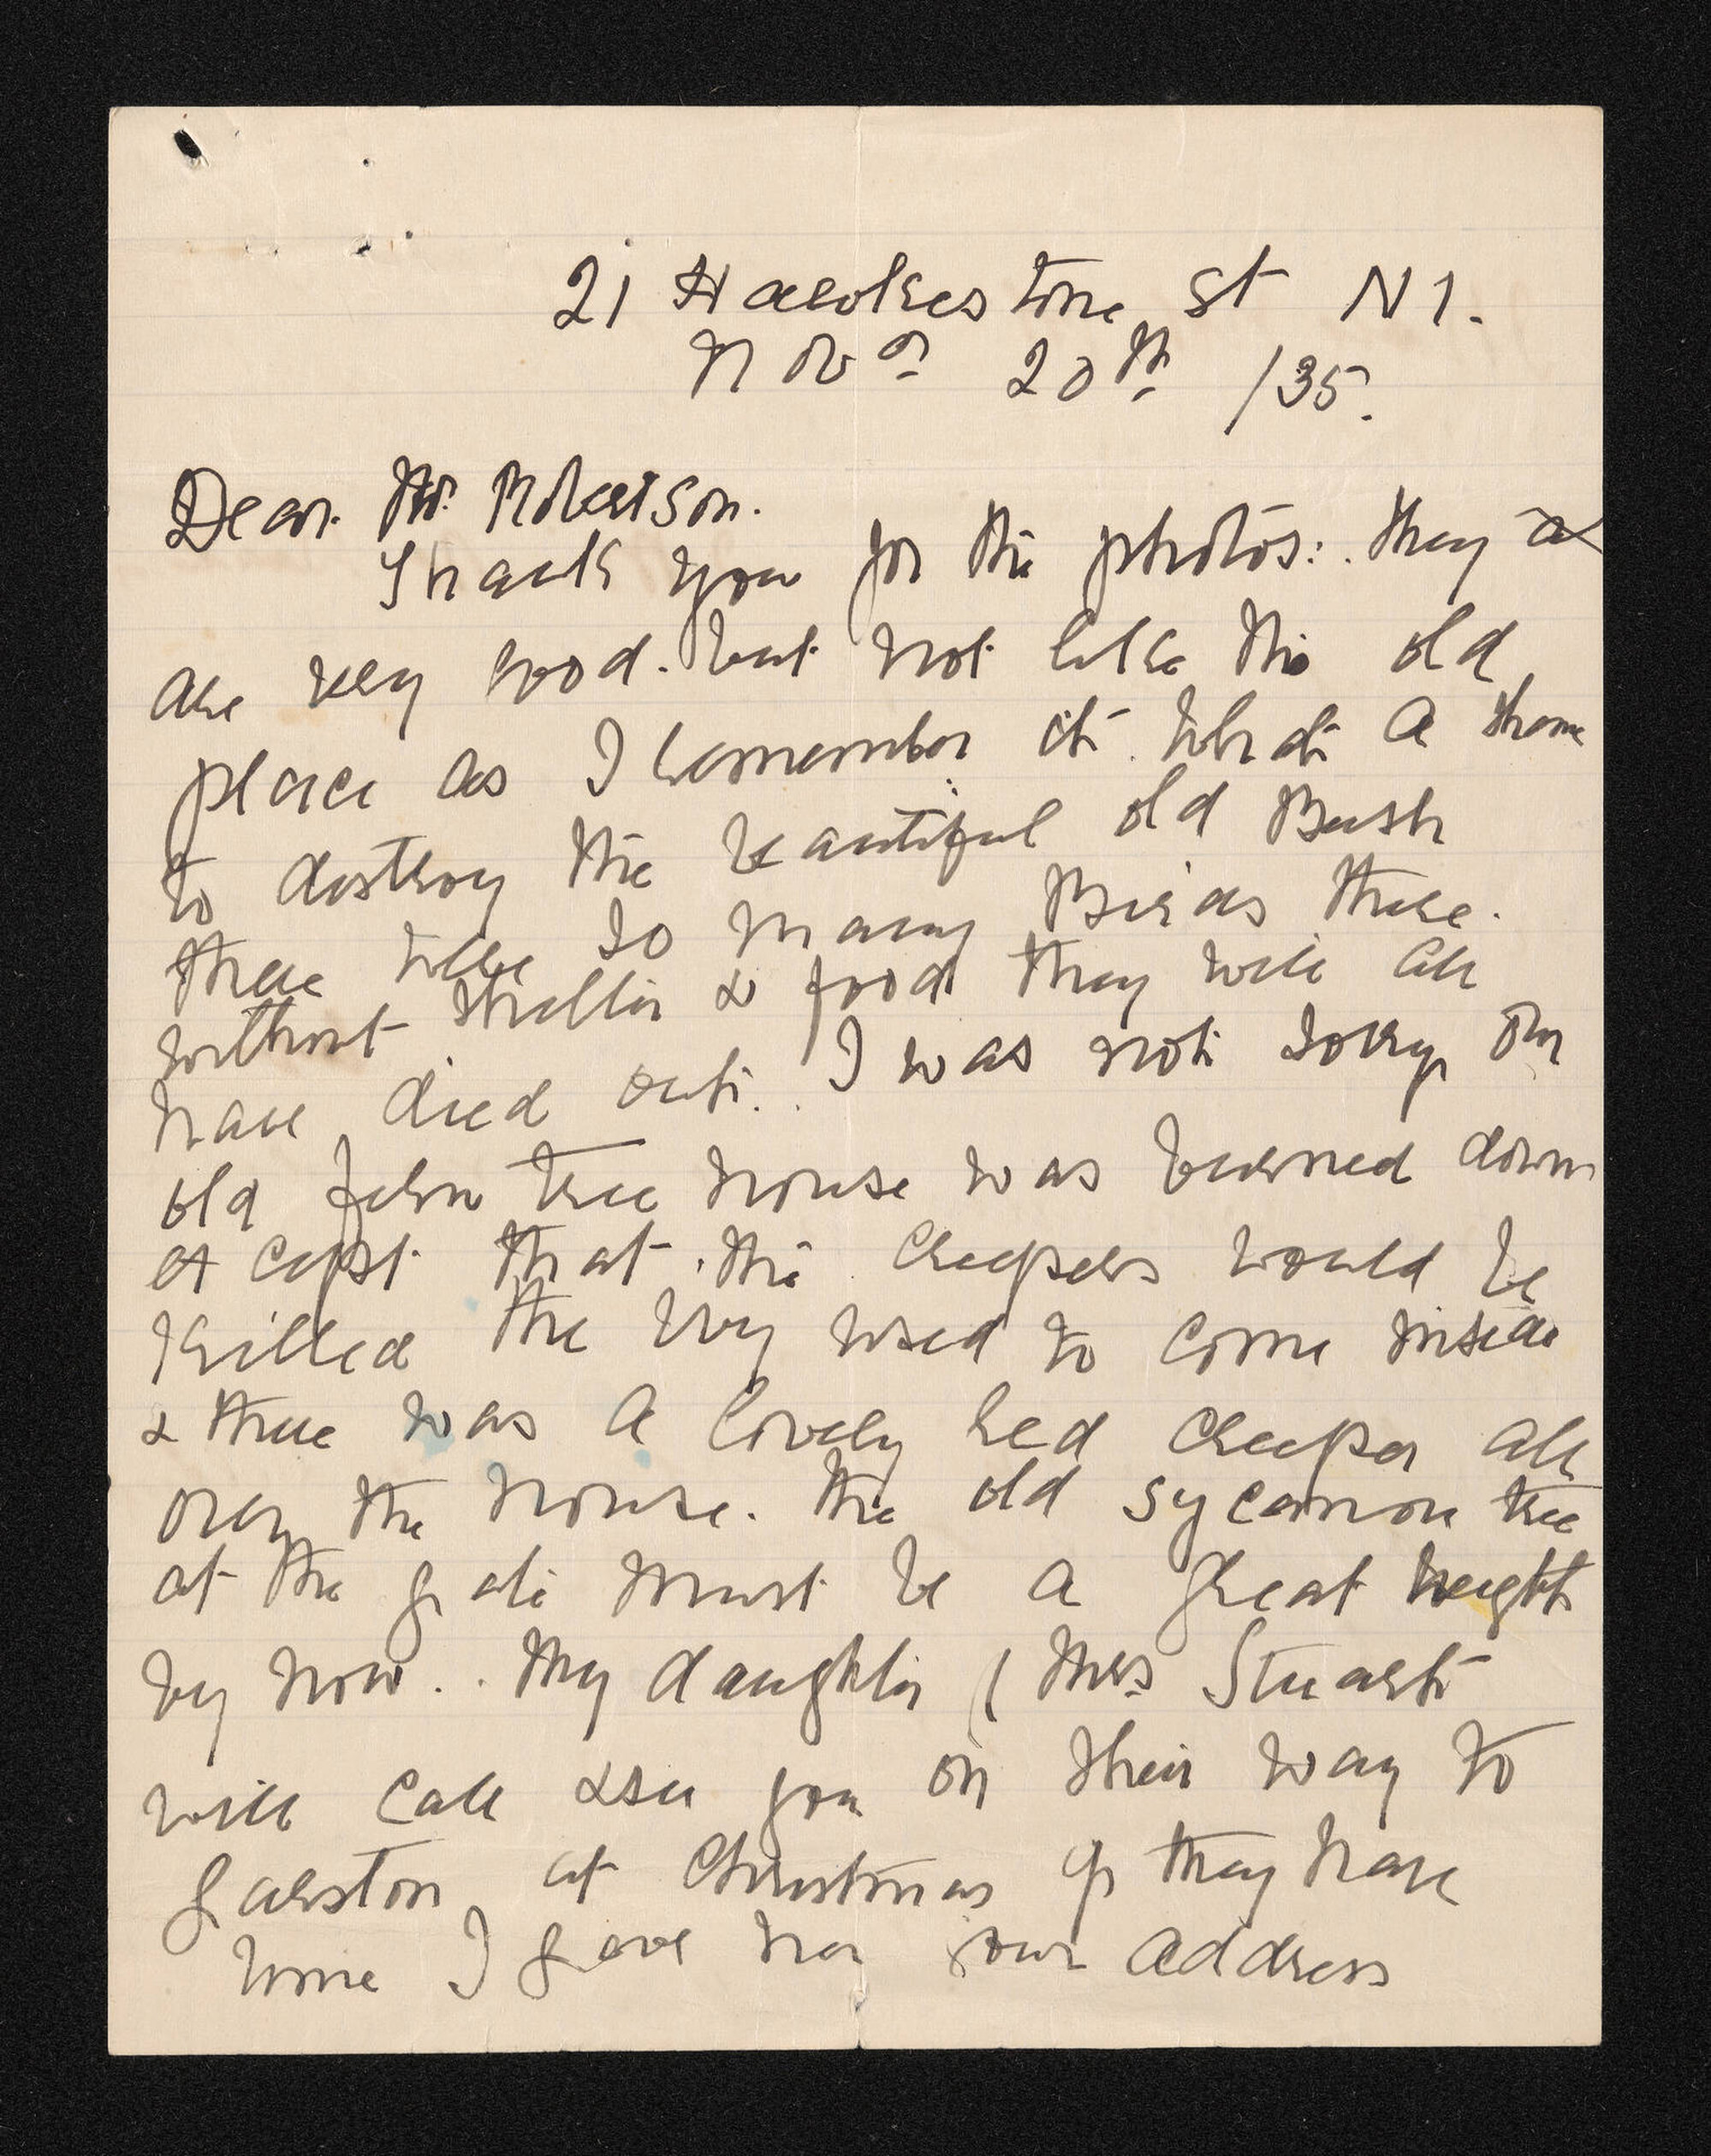 21 Hawkestone St N1.
Novr 20th /35.
Dear Mr. Robertson.
Thank you for the photos: they
are very good. but not like the old
place as I remember it. What a shame
to destroy the beautiful old Bush
there were so many Birds there.
without shelter & food they will all
have died out. I was not sorry our
old fern tree house was burned down
except that the creepers would be
Killed the Ivy used to come inside
& there was a lovely red creeper all
over the house. the old sycamore tree
at the gate must be a great height
by now. My daughter (Mrs Stuart
will call & see you on their way to
Garston at Christmas if they have
time I gave her your address